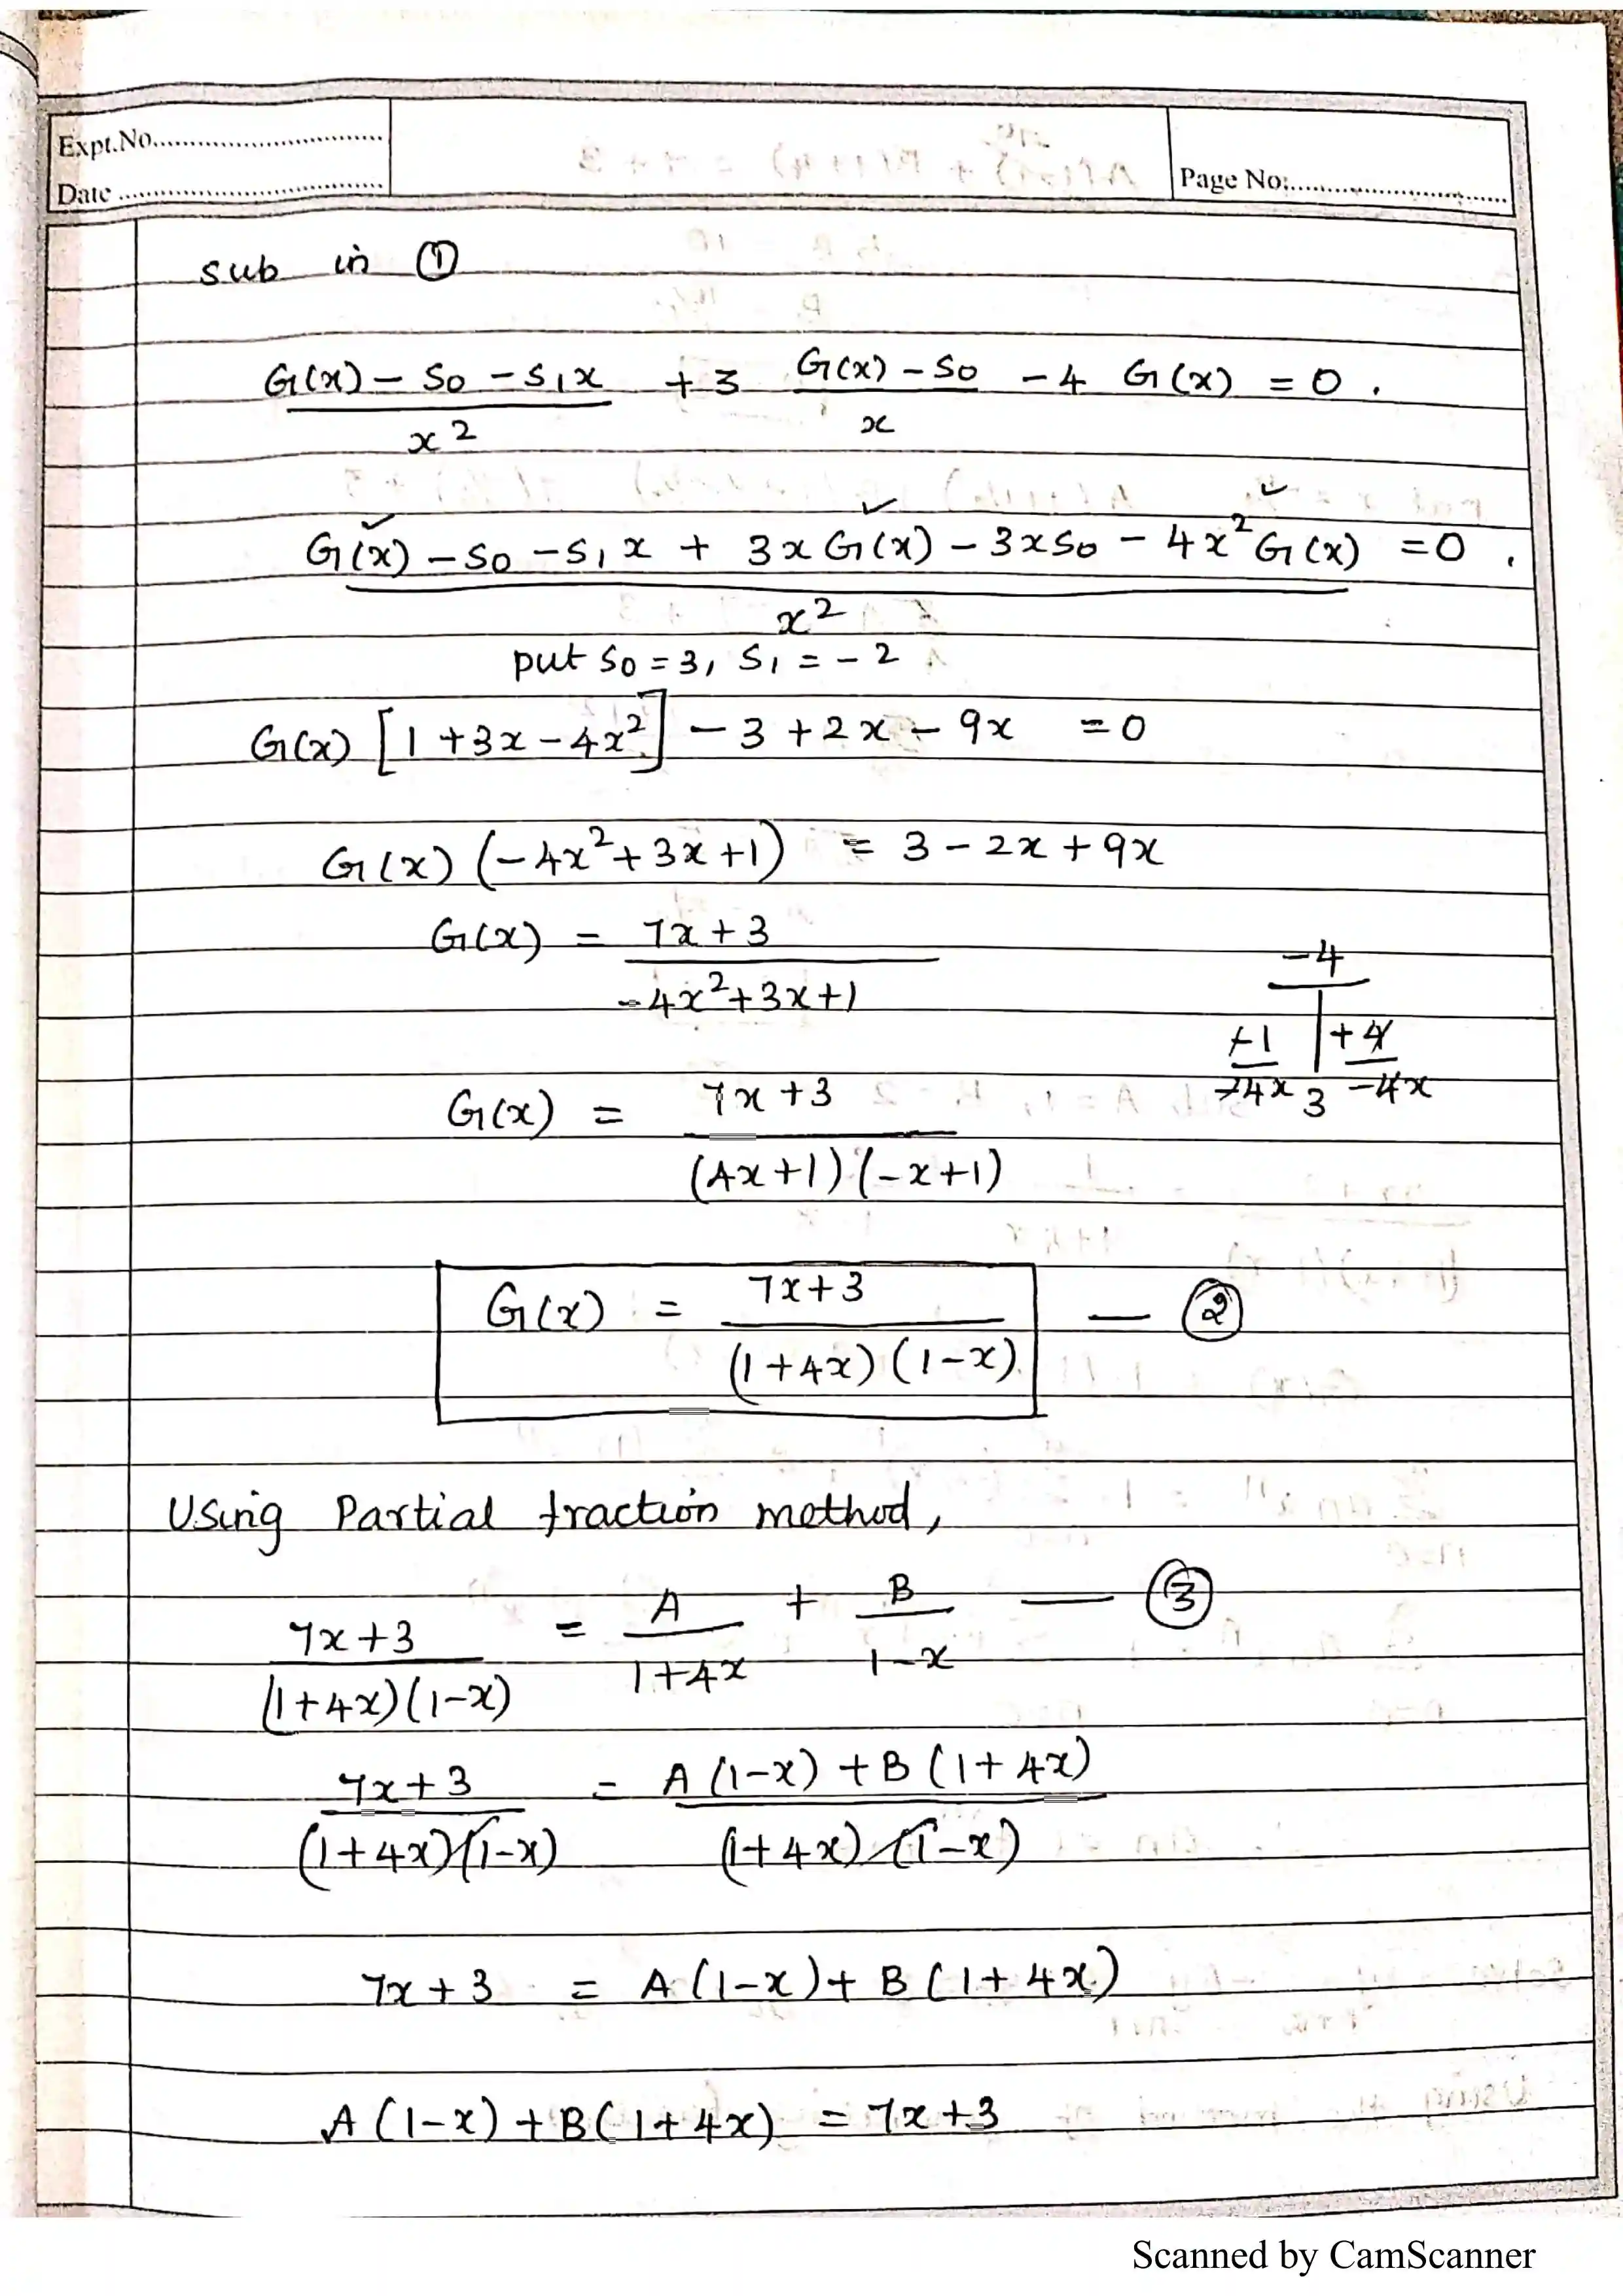 Expt.No..............................
Date ..............................
Page No:..............................
sub in ①
G(x) - S0 - S1x / x² + 3 G(x) - S0 / x - 4 G(x) = 0 .
G(x) - S0 - S1 x + 3x G(x) - 3xS0 - 4x² G(x) / x² = 0 .
put S0 = 3, S1 = - 2
G(x) [1 + 3x - 4x²] - 3 + 2x - 9x = 0
G(x) (-4x² + 3x + 1) = 3 - 2x + 9x
G(x) = 7x + 3 / -4x² + 3x + 1
-4
-1 | +4
3 -4x
G(x) = 7x + 3 / (4x + 1) (-x + 1)
G(x) = 7x + 3 / (1 + 4x) (1 - x) — ②
Using Partial fraction method,
7x + 3 / (1 + 4x) (1 - x) = A / 1 + 4x + B / 1 - x — ③
7x + 3 / (1 + 4x) (1 - x) = A (1 - x) + B (1 + 4x) / (1 + 4x) (1 - x)
7x + 3 = A (1 - x) + B (1 + 4x)
A (1 - x) + B (1 + 4x) = 7x + 3
Scanned by CamScanner